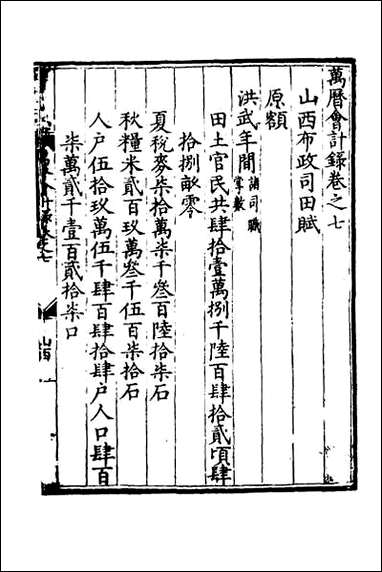 萬曆會計錄卷之七
山西布政司田賦
原額
洪武年間諸司職掌數
田土官民共肆拾壹萬捌千陸百肆拾貳頃肆
拾捌畝零
夏稅麥柒拾萬柒千叁百陸拾柒石
秋糧米貳百玖萬叁千伍百柒拾石
人户伍拾玖萬伍千肆百肆拾肆户人口肆百
柒萬貳千壹百貳拾柒口
山西